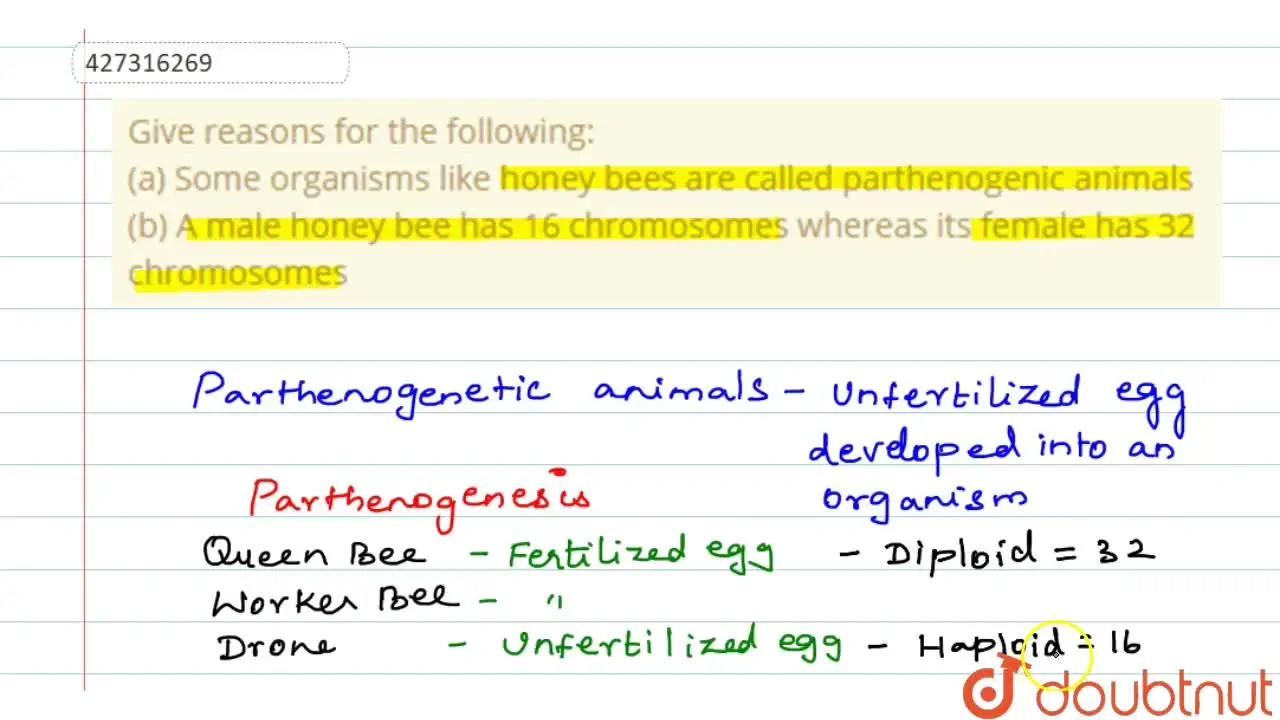 427316269
Give reasons for the following:
(a) Some organisms like honey bees are called parthenogenic animals
(b) A male honey bee has 16 chromosomes whereas its female has 32
chromosomes
Parthenogenetic animals - Unfertilized egg
developed into an
Parthenogenesis organism
Queen Bee - Fertilized egg - Diploid = 32
Worker Bee - "
Drone - Unfertilized egg - Haploid = 16
doubtnut